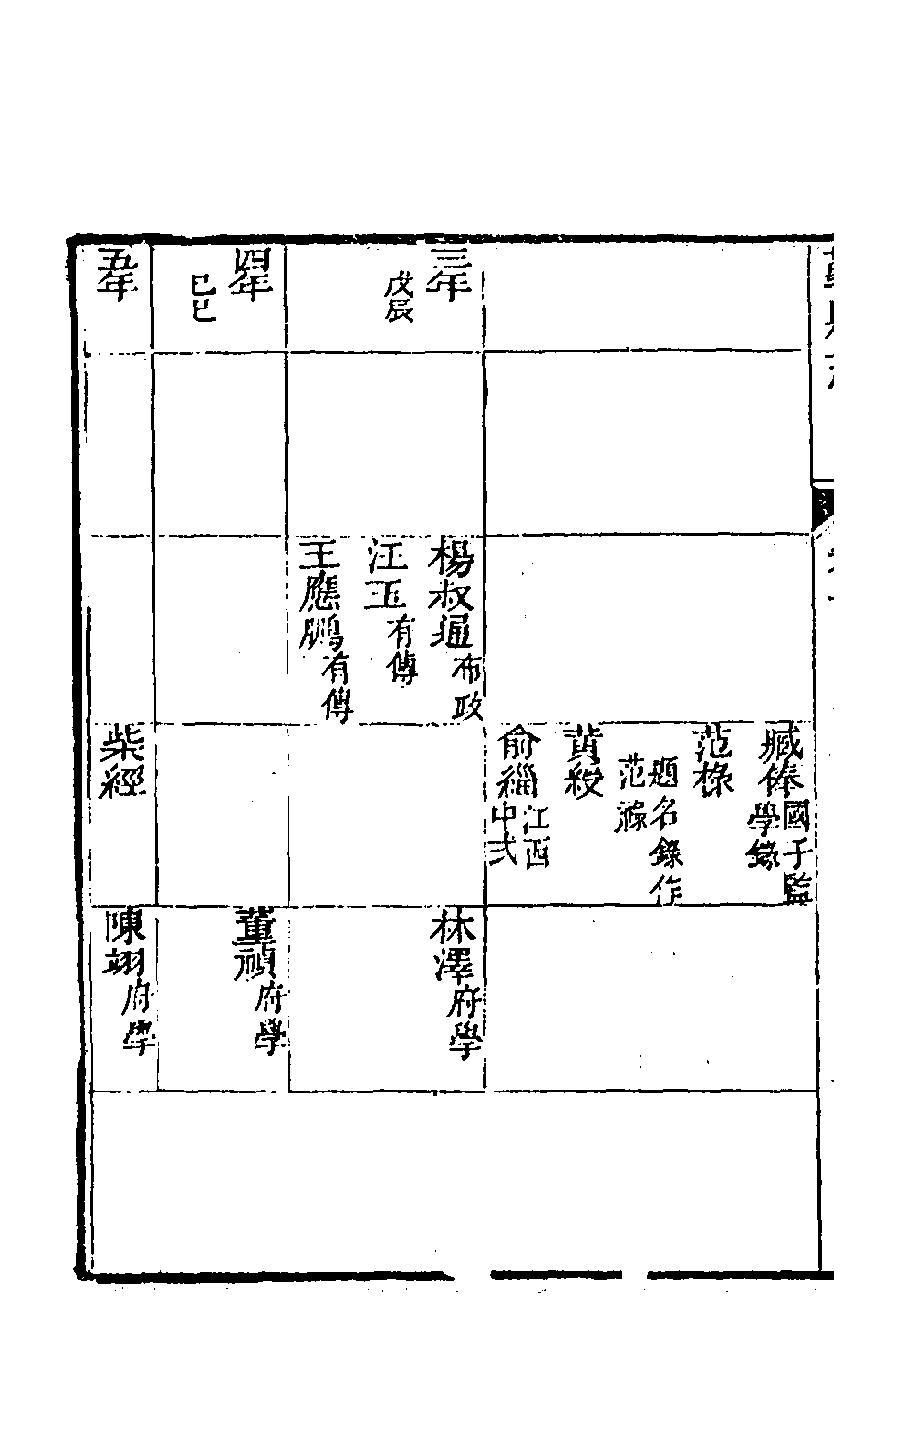 臧俸國子監
學錄
范祿
題名錄作
范濂
黃綬
俞緇江西
中式
三年
戊辰
楊叔通布政
江玉有傳
王應鵬有傳
林澤府學
四年
己巳
董禎府學
五年
柴經
陳翊府學